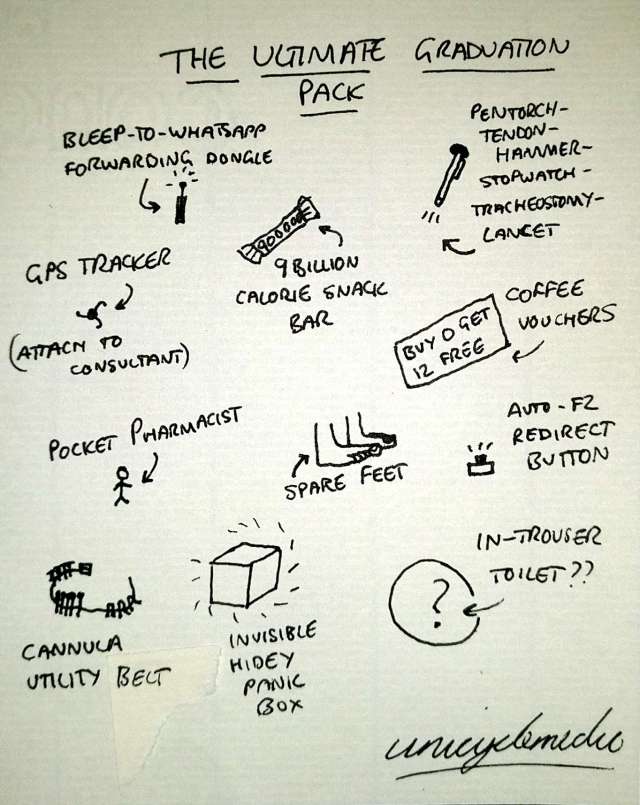 THE ULTIMATE GRADUATION
PACK
BLEEP-TO-WHATSAPP
FORWARDING DONGLE
PENTORCH-
TENDON-
HAMMER-
STOPWATCH-
TRACHEOSTOMY-
LANCET
900000
9 BILLION
CALORIE SNACK
BAR
GPS TRACKER
(ATTACH TO
CONSULTANT)
COFFEE
VOUCHERS
BUY 0 GET
12 FREE
POCKET PHARMACIST
SPARE FEET
AUTO-F2
REDIRECT
BUTTON
CANNULA
UTILITY BELT
INVISIBLE
HIDEY
PANIC
BOX
IN-TROUSER
TOILET??
?
unicyclemedic